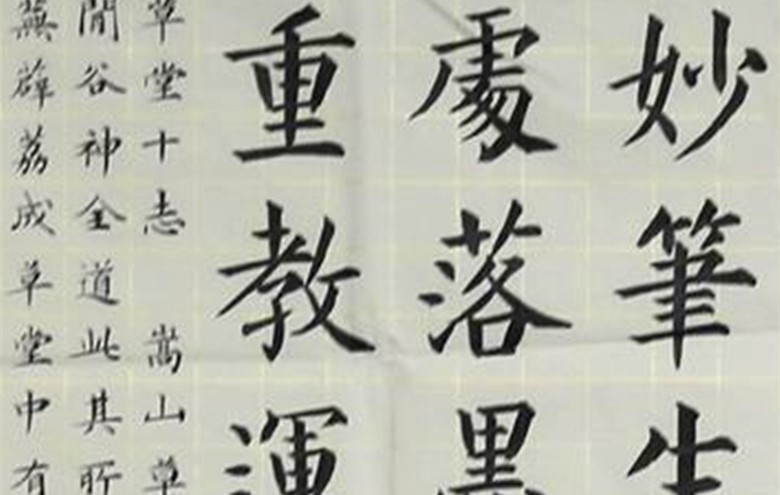 妙筆生
處落墨
重教運
草堂十志 嵩山草
閒谷神全道此其所
蕪薜荔成草堂中有